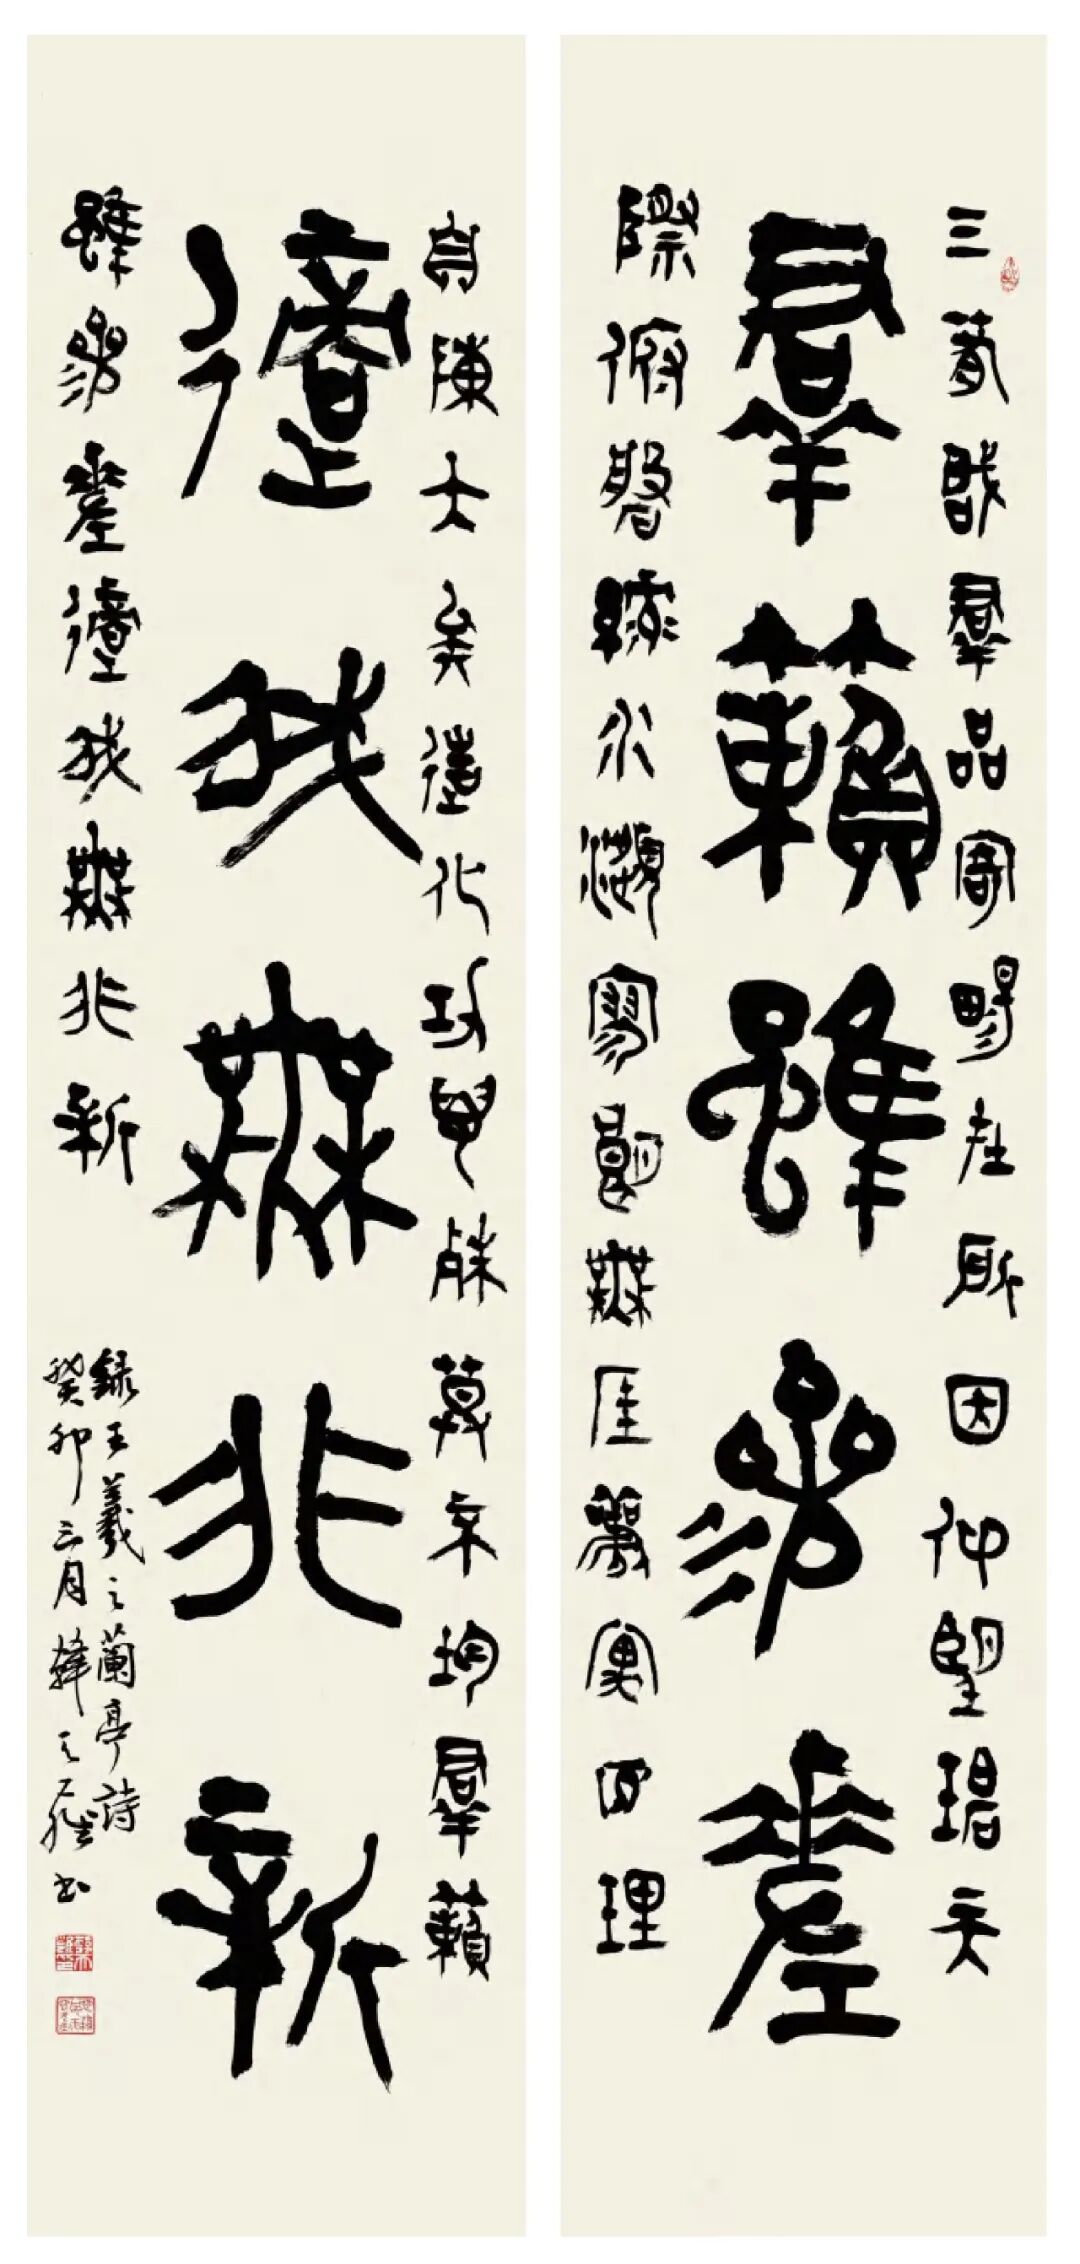 三萅啟羣品寄暢在所因仰望碧天
羣籟雖參差
際俯磐綠水瀕寥朗無厓觀寓目理
自陳大矣造化功萬殊莫不均羣籟
適我無非新
雖參差適我無非新
錄王羲之蘭亭詩
癸卯三月韓天雍書